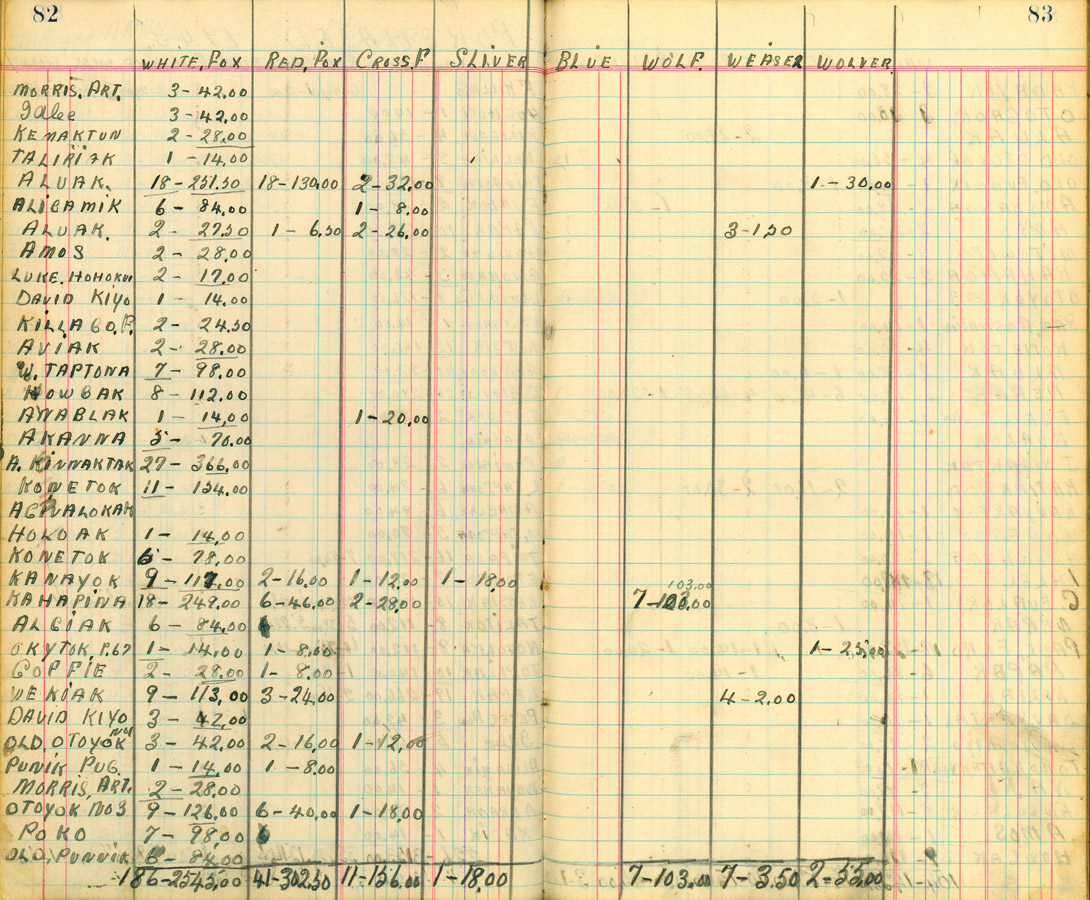 82 83
WHITE, FOX RED, FOX CROSS. F SLIVER BLUE WOLF. WEASEL WOLVER.
MORRIS. ART. 3 - 42.00
3 - 42.00
KEMAKTUN 2 - 28.00
TALIRIAK 1 - 14.00
ALUAK. 18 - 251.50 18 - 130.00 2 - 32.00 1 - 30.00
ALIGAMIK 6 - 84.00 1 - 8.00
ALUAK. 2 - 27.50 1 - 6.50 2 - 26.00 3 - 1.50
AMOS 2 - 28.00
LUKE. HOHOKUI 2 - 17.00
DAVID KIYO 1 - 14.00
KILLAGO. P. 2 - 24.50
AVIAK 2 - 28.00
W. TAPTONA 7 - 98.00
HOWGAK 8 - 112.00
ANABLAK 1 - 14.00 1 - 20.00
AKANNA 5 - 70.00
A. KINNAKTAK 27 - 366.00
KONETOK 11 - 154.00
AGVALOKAK
HOLOAK 1 - 14.00
KONETOK 6 - 78.00
KANAYOK 9 - 117.00 2 - 16.00 1 - 12.00 1 - 18.00
103.00
KAHAPINA 18 - 249.00 6 - 46.00 2 - 28.00 7 - 103.00
ALGIAK 6 - 84.00
OKYTOK P.67 1 - 14.00 1 - 8.00 1 - 25.00
GOFFIE 2 - 28.00 1 - 8.00
WEKIAK 9 - 113.00 3 - 24.00 4 - 2.00
DAVID KIYO 3 - 42.00
OLD. OTOYOK NO1 3 - 42.00 2 - 16.00 1 - 12.00
PUNIK PUG. 1 - 14.00 1 - 8.00
MORRIS, ART. 2 - 28.00
OTOYOK NO3 9 - 126.00 6 - 40.00 1 - 18.00
POKO 7 - 98.00
OLD, PUNNIK 6 - 84.00
186 - 2545.00 41 - 302.50 11 - 156.00 1 - 18.00 7 - 103.00 7 - 3.50 2 - 55.00